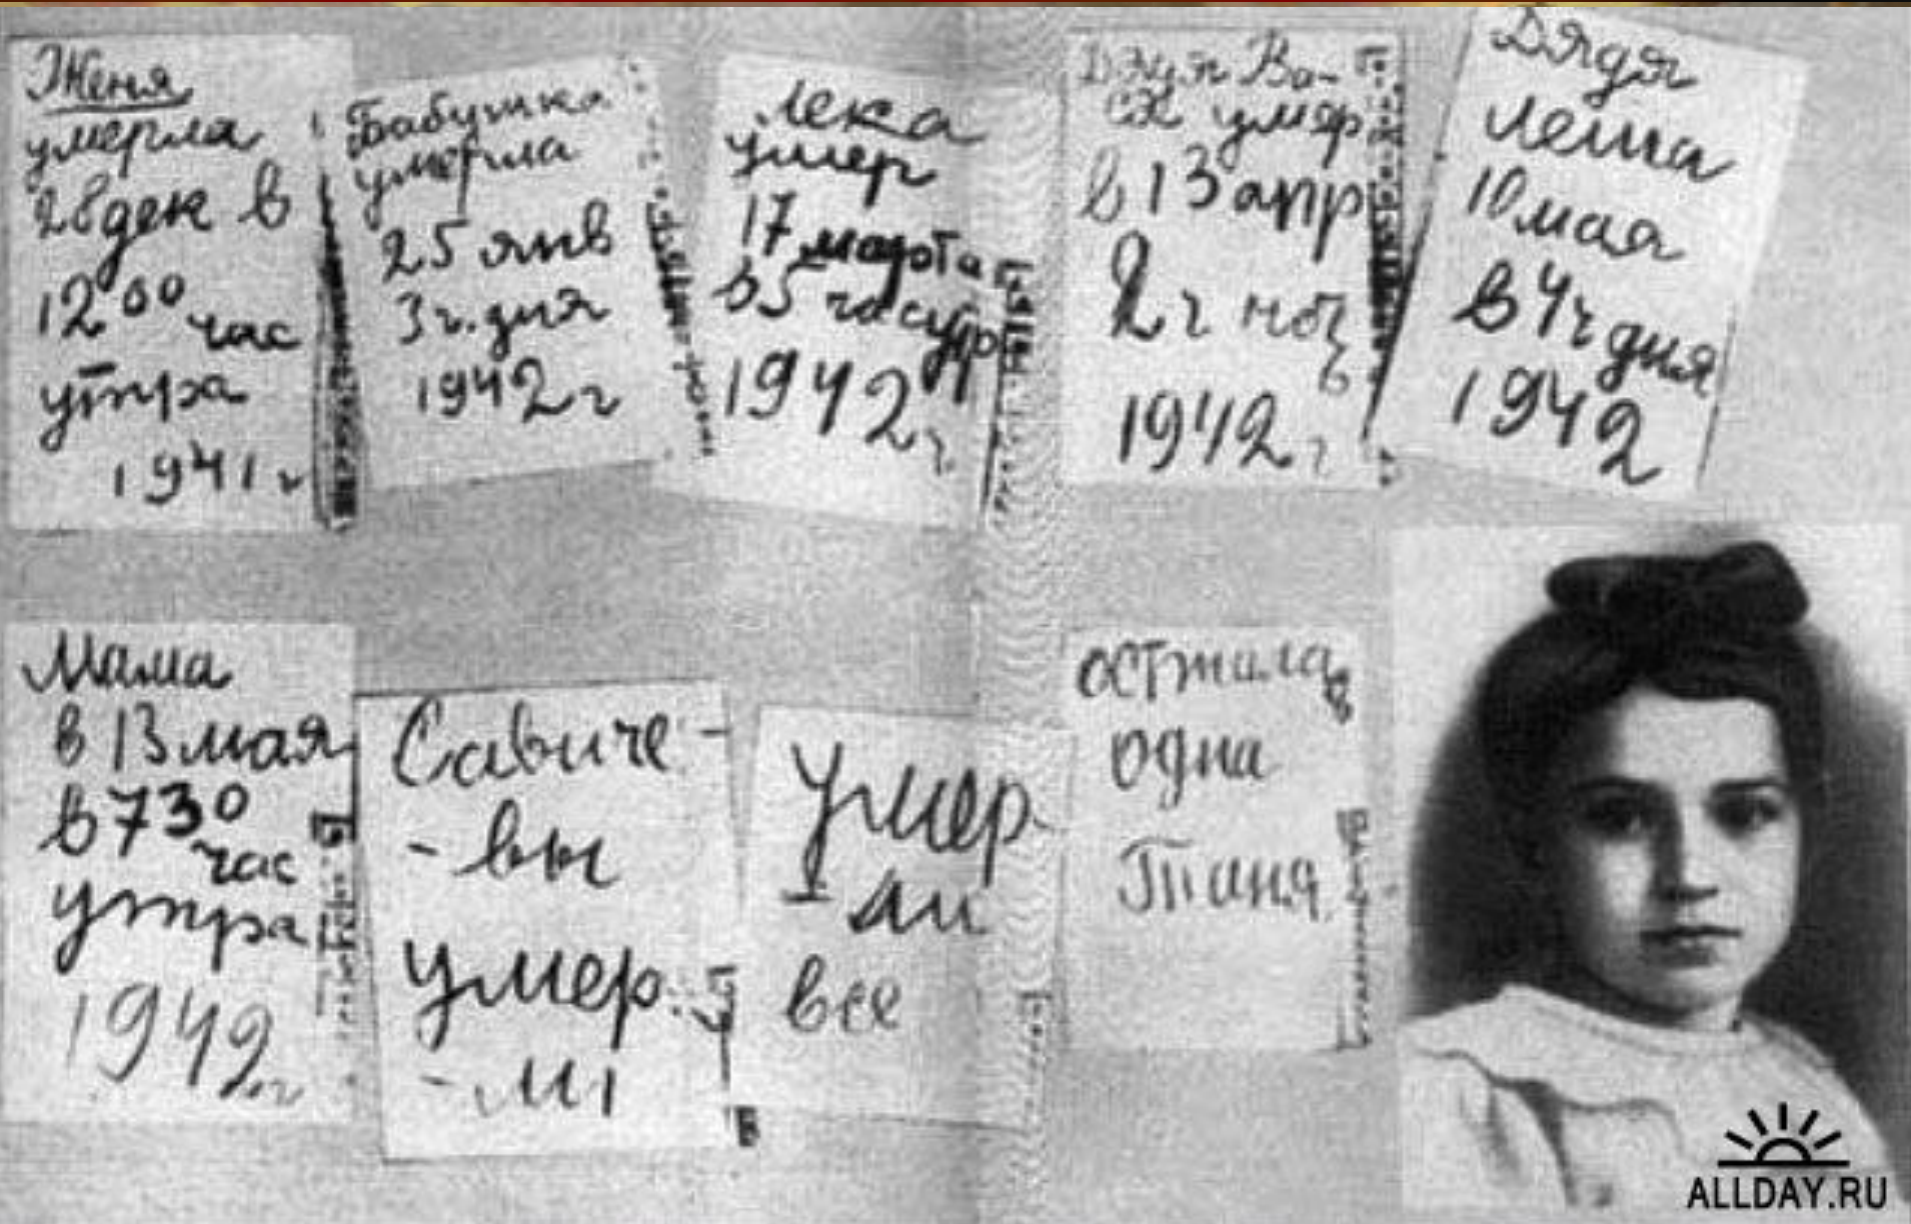 Женя
умерла
28 дек в
12 00 час
утра
1941 г
Бабушка
умерла
25 янв
3 ч. дня
1942 г
Лека
умер
17 марта
в 5 час утр
1942 г.
Дядя Ва-
ся умер
в 13 апр
2 ч ноч
ь
1942 г
Дядя
Леша
10 мая
в 4 ч дня
1942
Мама
в 13 мая
в 7 30
час
утра
1942 г
Савиче-
- вы
умер
- ли
Умер
- ли
все
осталась
одна
Таня.
ALLDAY.RU